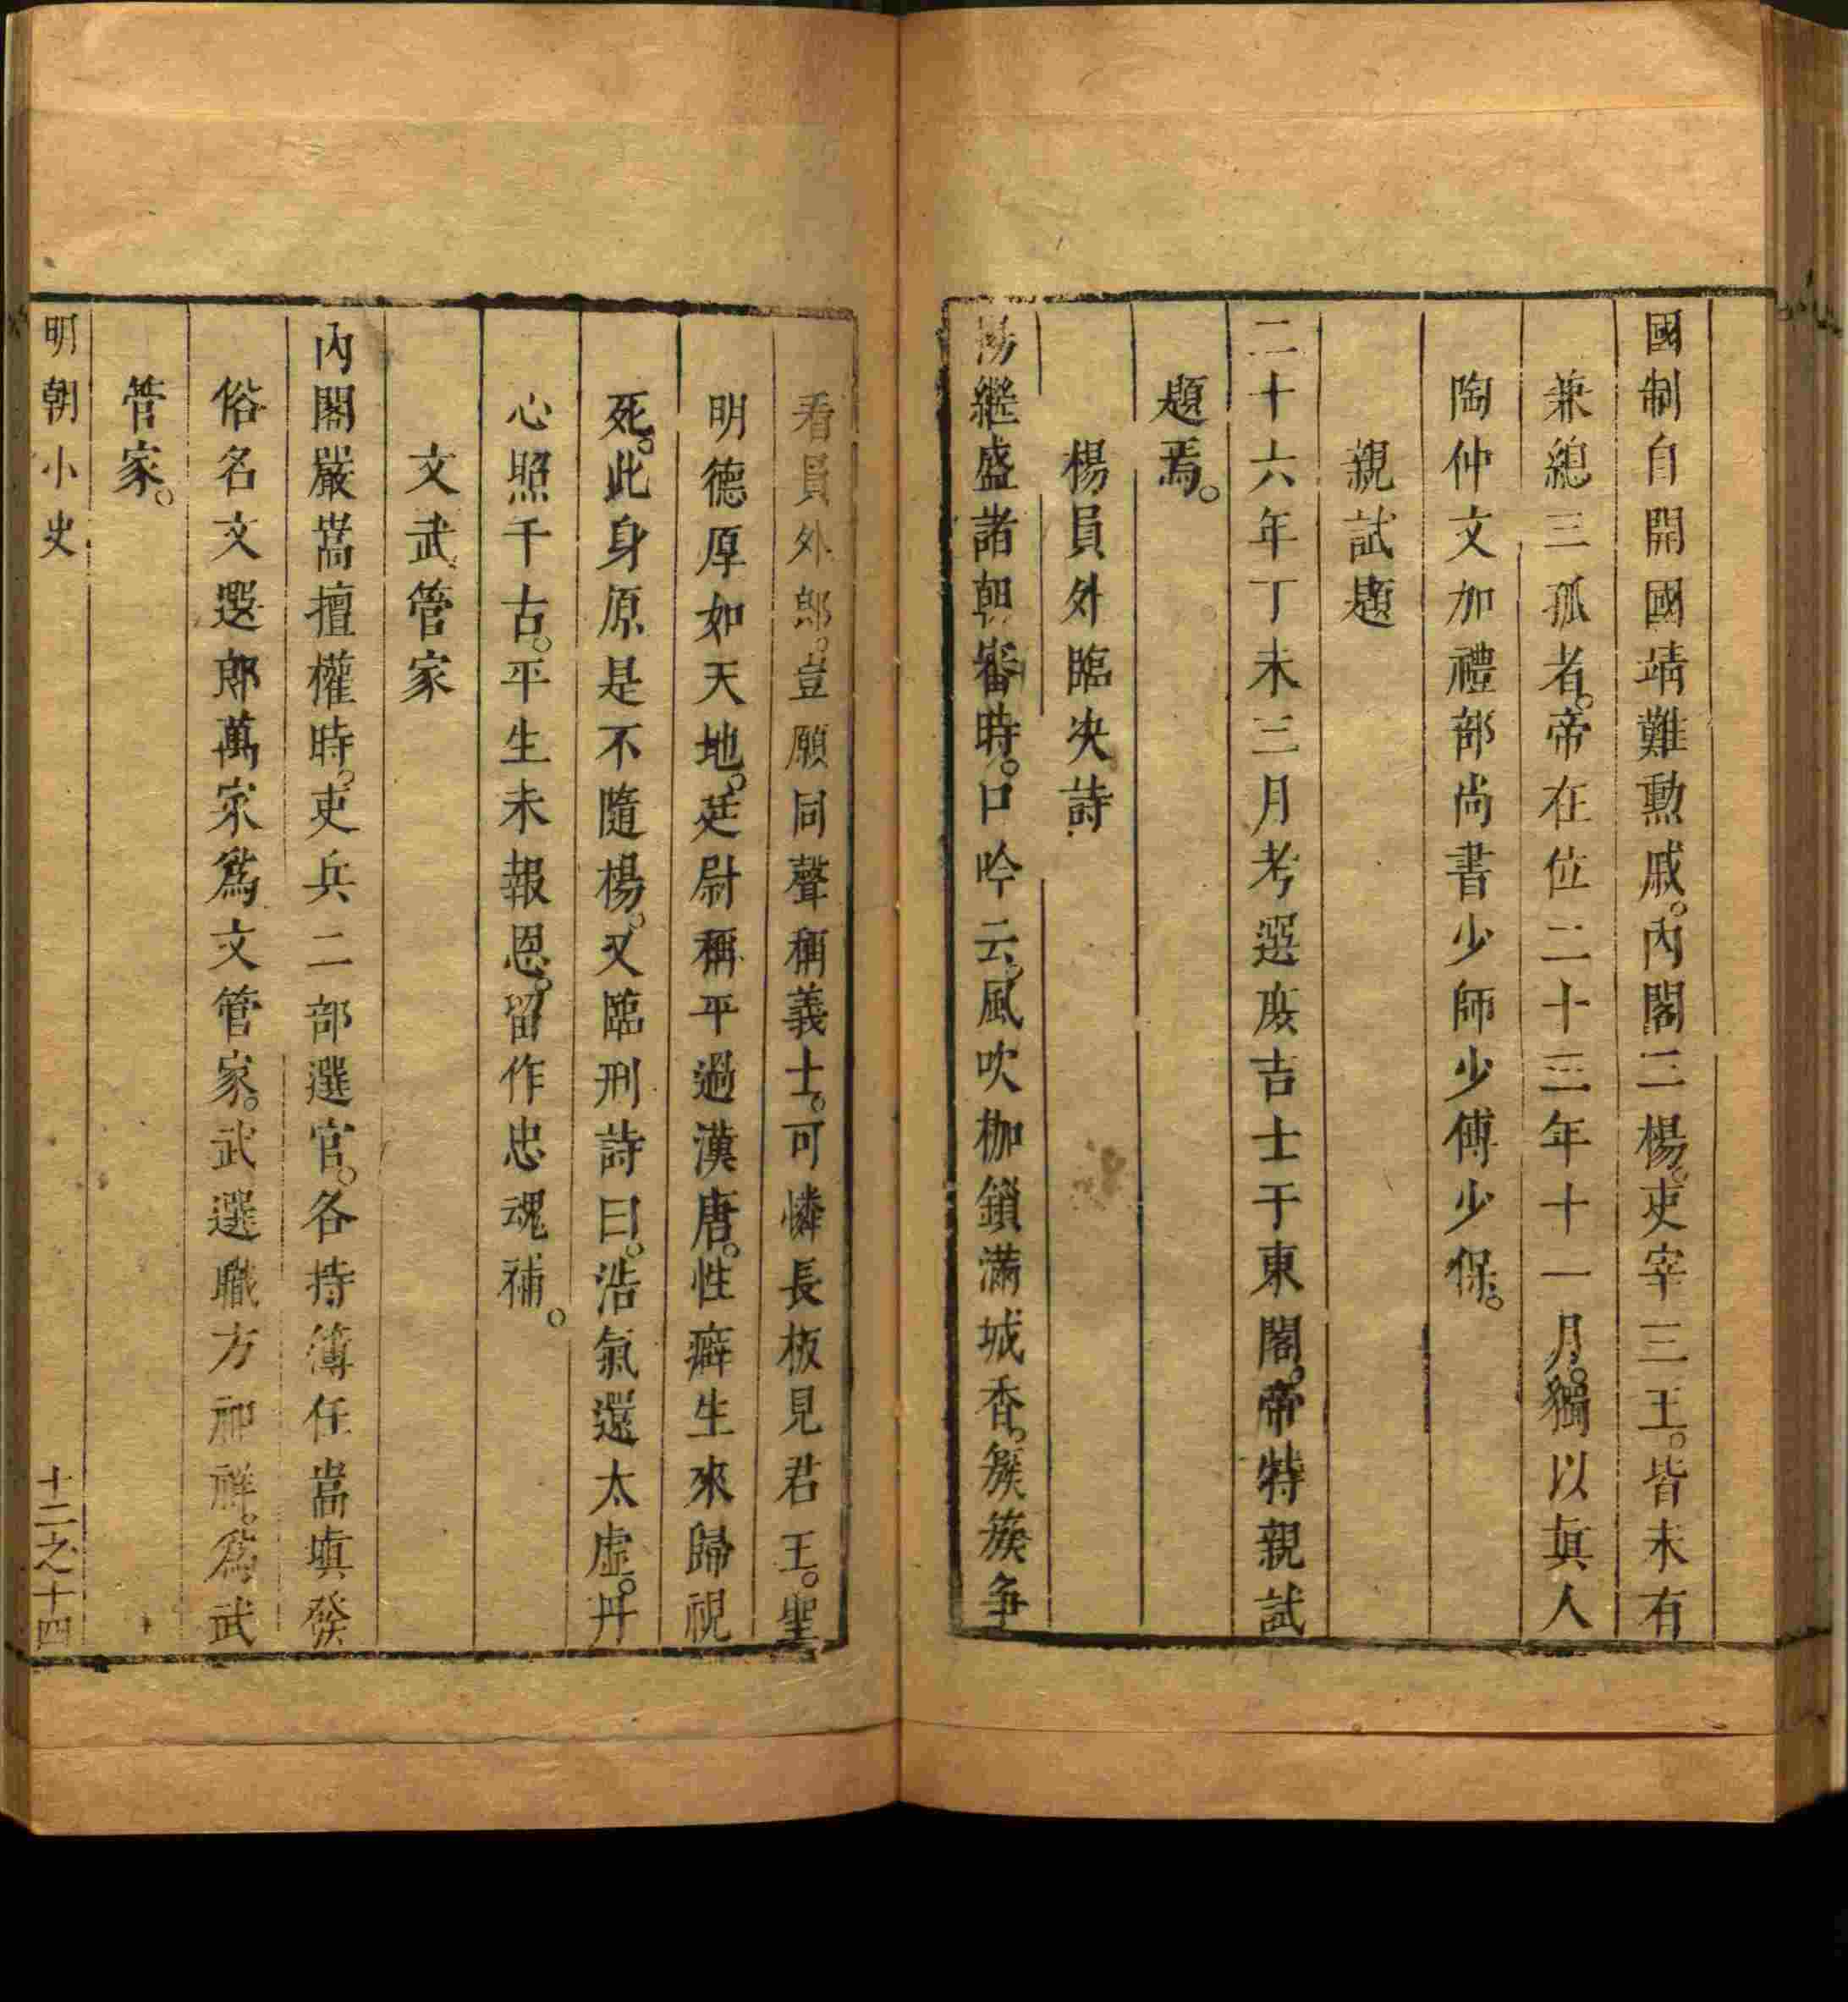 國制自開國靖難勳戚。內閣三楊。吏宰三王。皆未有
兼總三孤者。帝在位二十三年十一月。獨以眞人
陶仲文加禮部尚書少師少傅少保。
親試題
二十六年丁未三月考選庻吉士于東閣。帝特親試
題焉。
楊員外臨决詩
楊繼盛諸朝審時。口吟云。風吹枷鎖滿城香。簇簇争
看員外郎。豈願同聲稱義士。可憐長板見君王。聖
明德厚如天地。廷尉稱平過漢唐。性癖生來歸視
死。此身原是不隨楊。又臨刑詩曰。浩氣還太虛。丹
心照千古。平生未報恩。留作忠魂補。
文武管家
內閣嚴嵩擅權時。吏兵二部選官。各持簿任嵩塡發
俗名文選郎萬寀爲文管家。武選職方祁祥。爲武
管家。
明朝小史
十二之十四